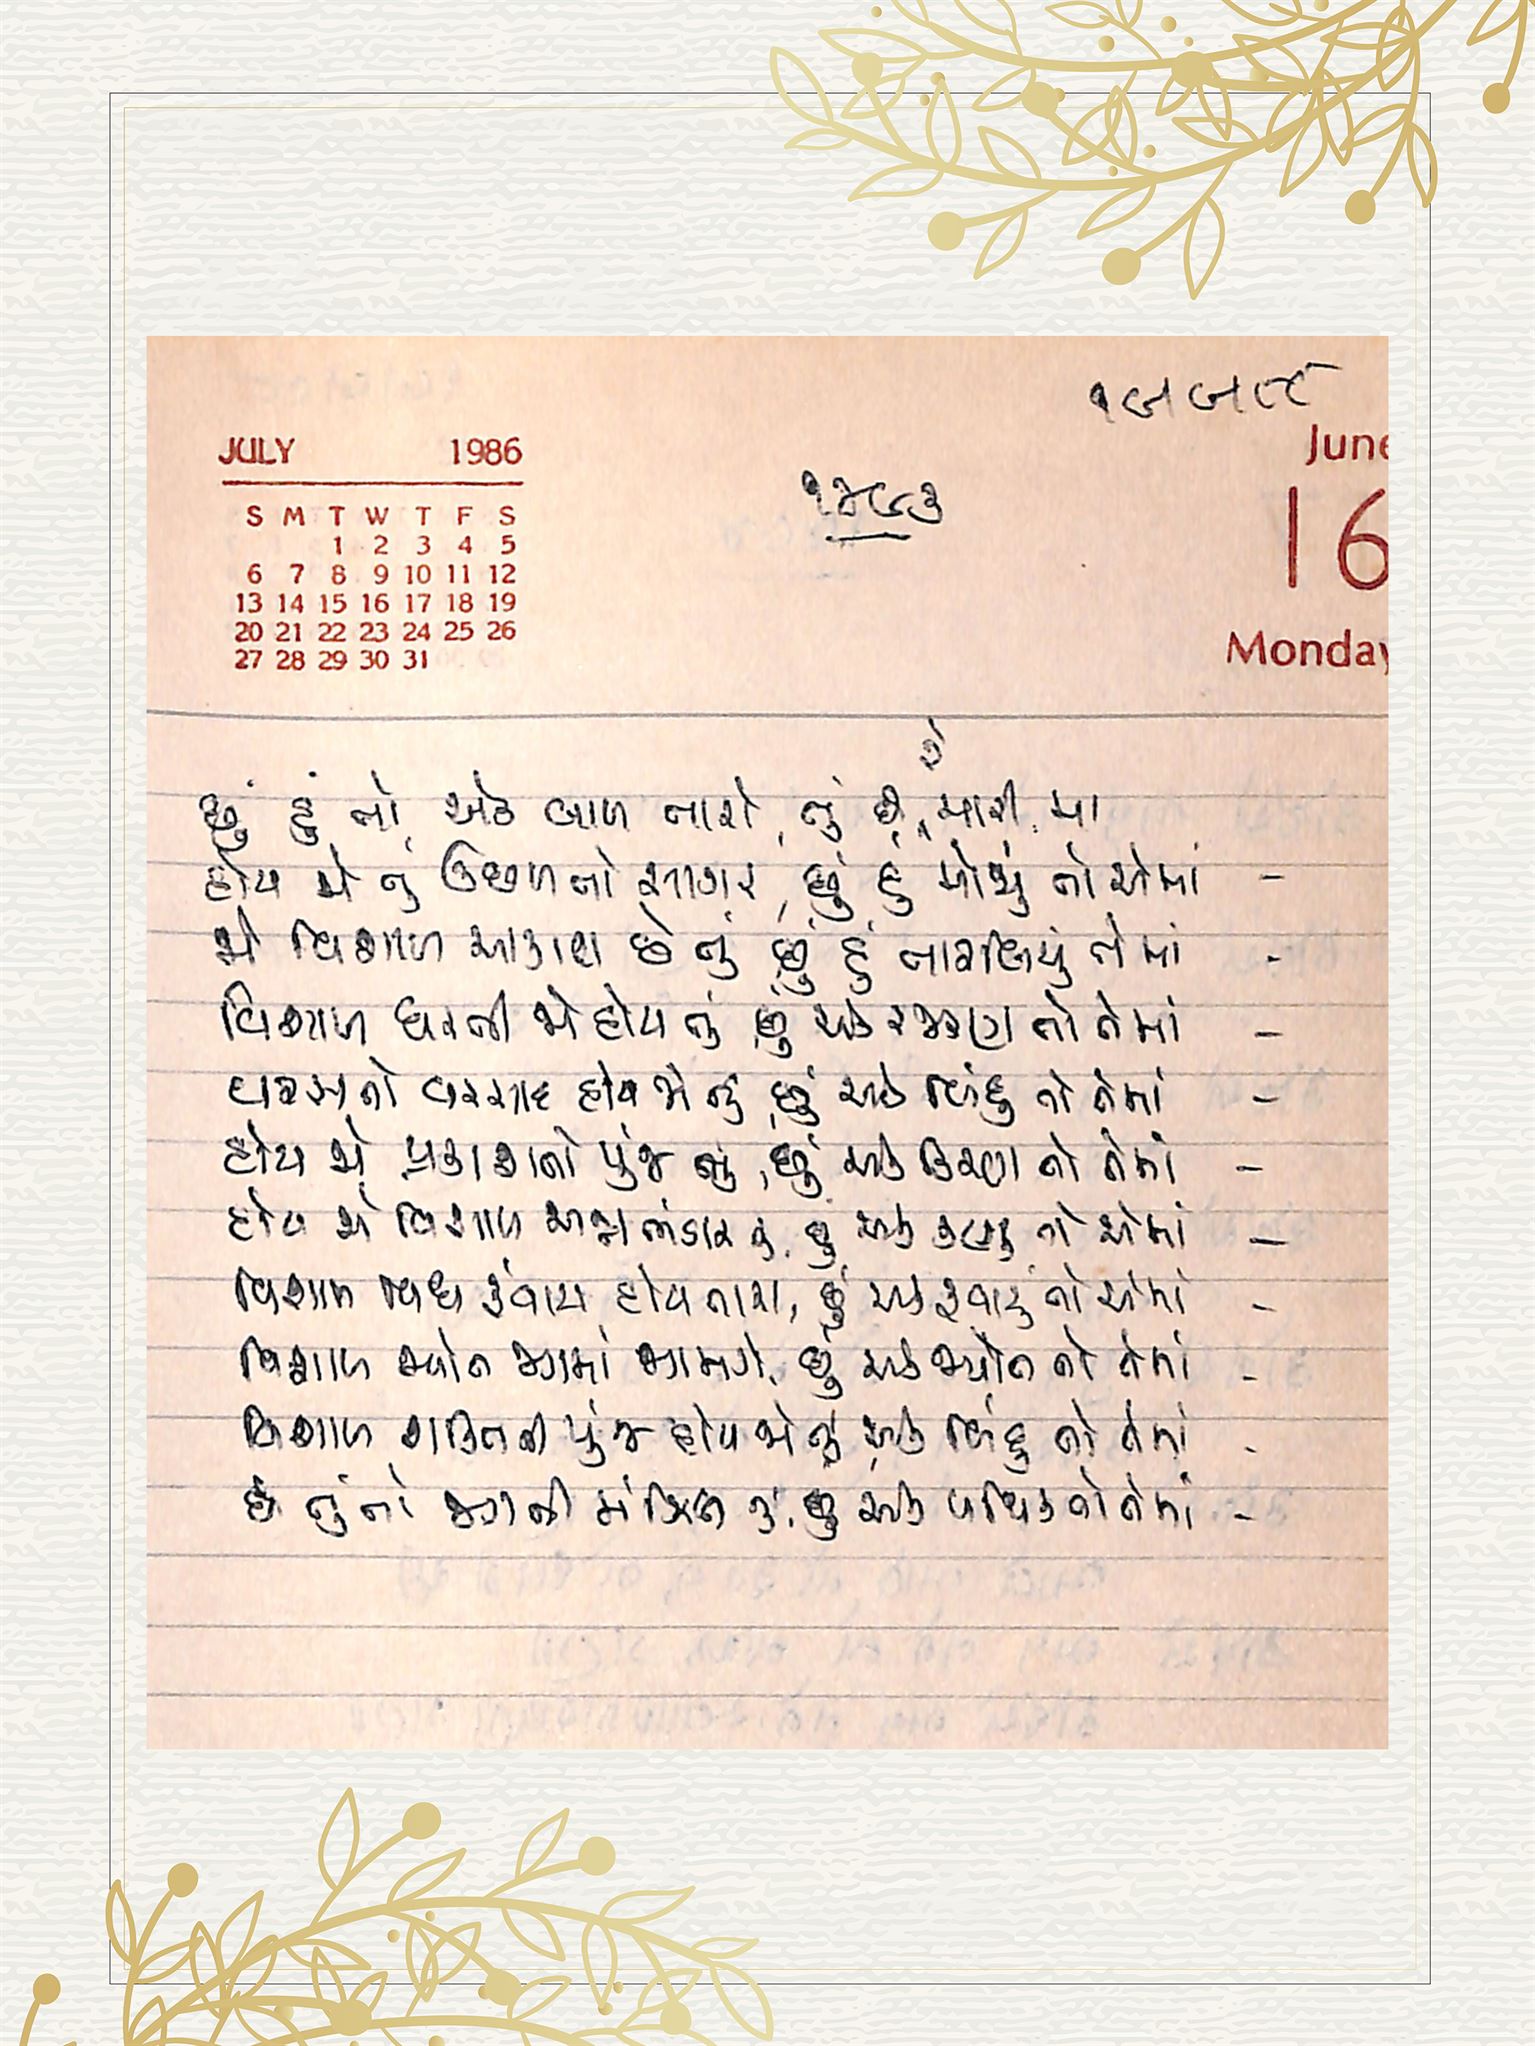 JULY 1986
S M T W T F S
1 2 3 4 5
6 7 8 9 10 11 12
13 14 15 16 17 18 19
20 21 22 23 24 25 26
27 28 29 30 31
June
16
Monday
છું હું તો એક બાળ તારો, તું છે મારી મા
હોય જો તું ઉછળતો સાગર, છું હું મોજું તો એમાં -
જો વિશાળ આકાશ છે તું છું હું તારલિયું તેમાં -
વિશાળ ધરતી જો હોય તું છું એક રજકણ તો તેમાં -
વરસતો વરસાદ હોય જો તું, છું એક બિંદુ તો તેમાં -
હોય જો પ્રકાશનો પુંજ તું, છું એક કિરણ તો તેમાં -
હોય જો વિશાળ અન્નભંડાર તું, છું એક કણ તો એમાં -
વિશાળ વિધ રુંવાટા હોય તારા, છું એક રુંવાટું તો એમાં -
વિશાળ જ્યોત જગમાં ઝગમગે, છું એક જ્યોત તો તેમાં -
વિશાળ શક્તિની પુંજ હોય જો તું એક બિંદુ તો તેમાં -
છે તું તો જગની મંઝિલ તું, છું એક પથિક તો તેમાં -